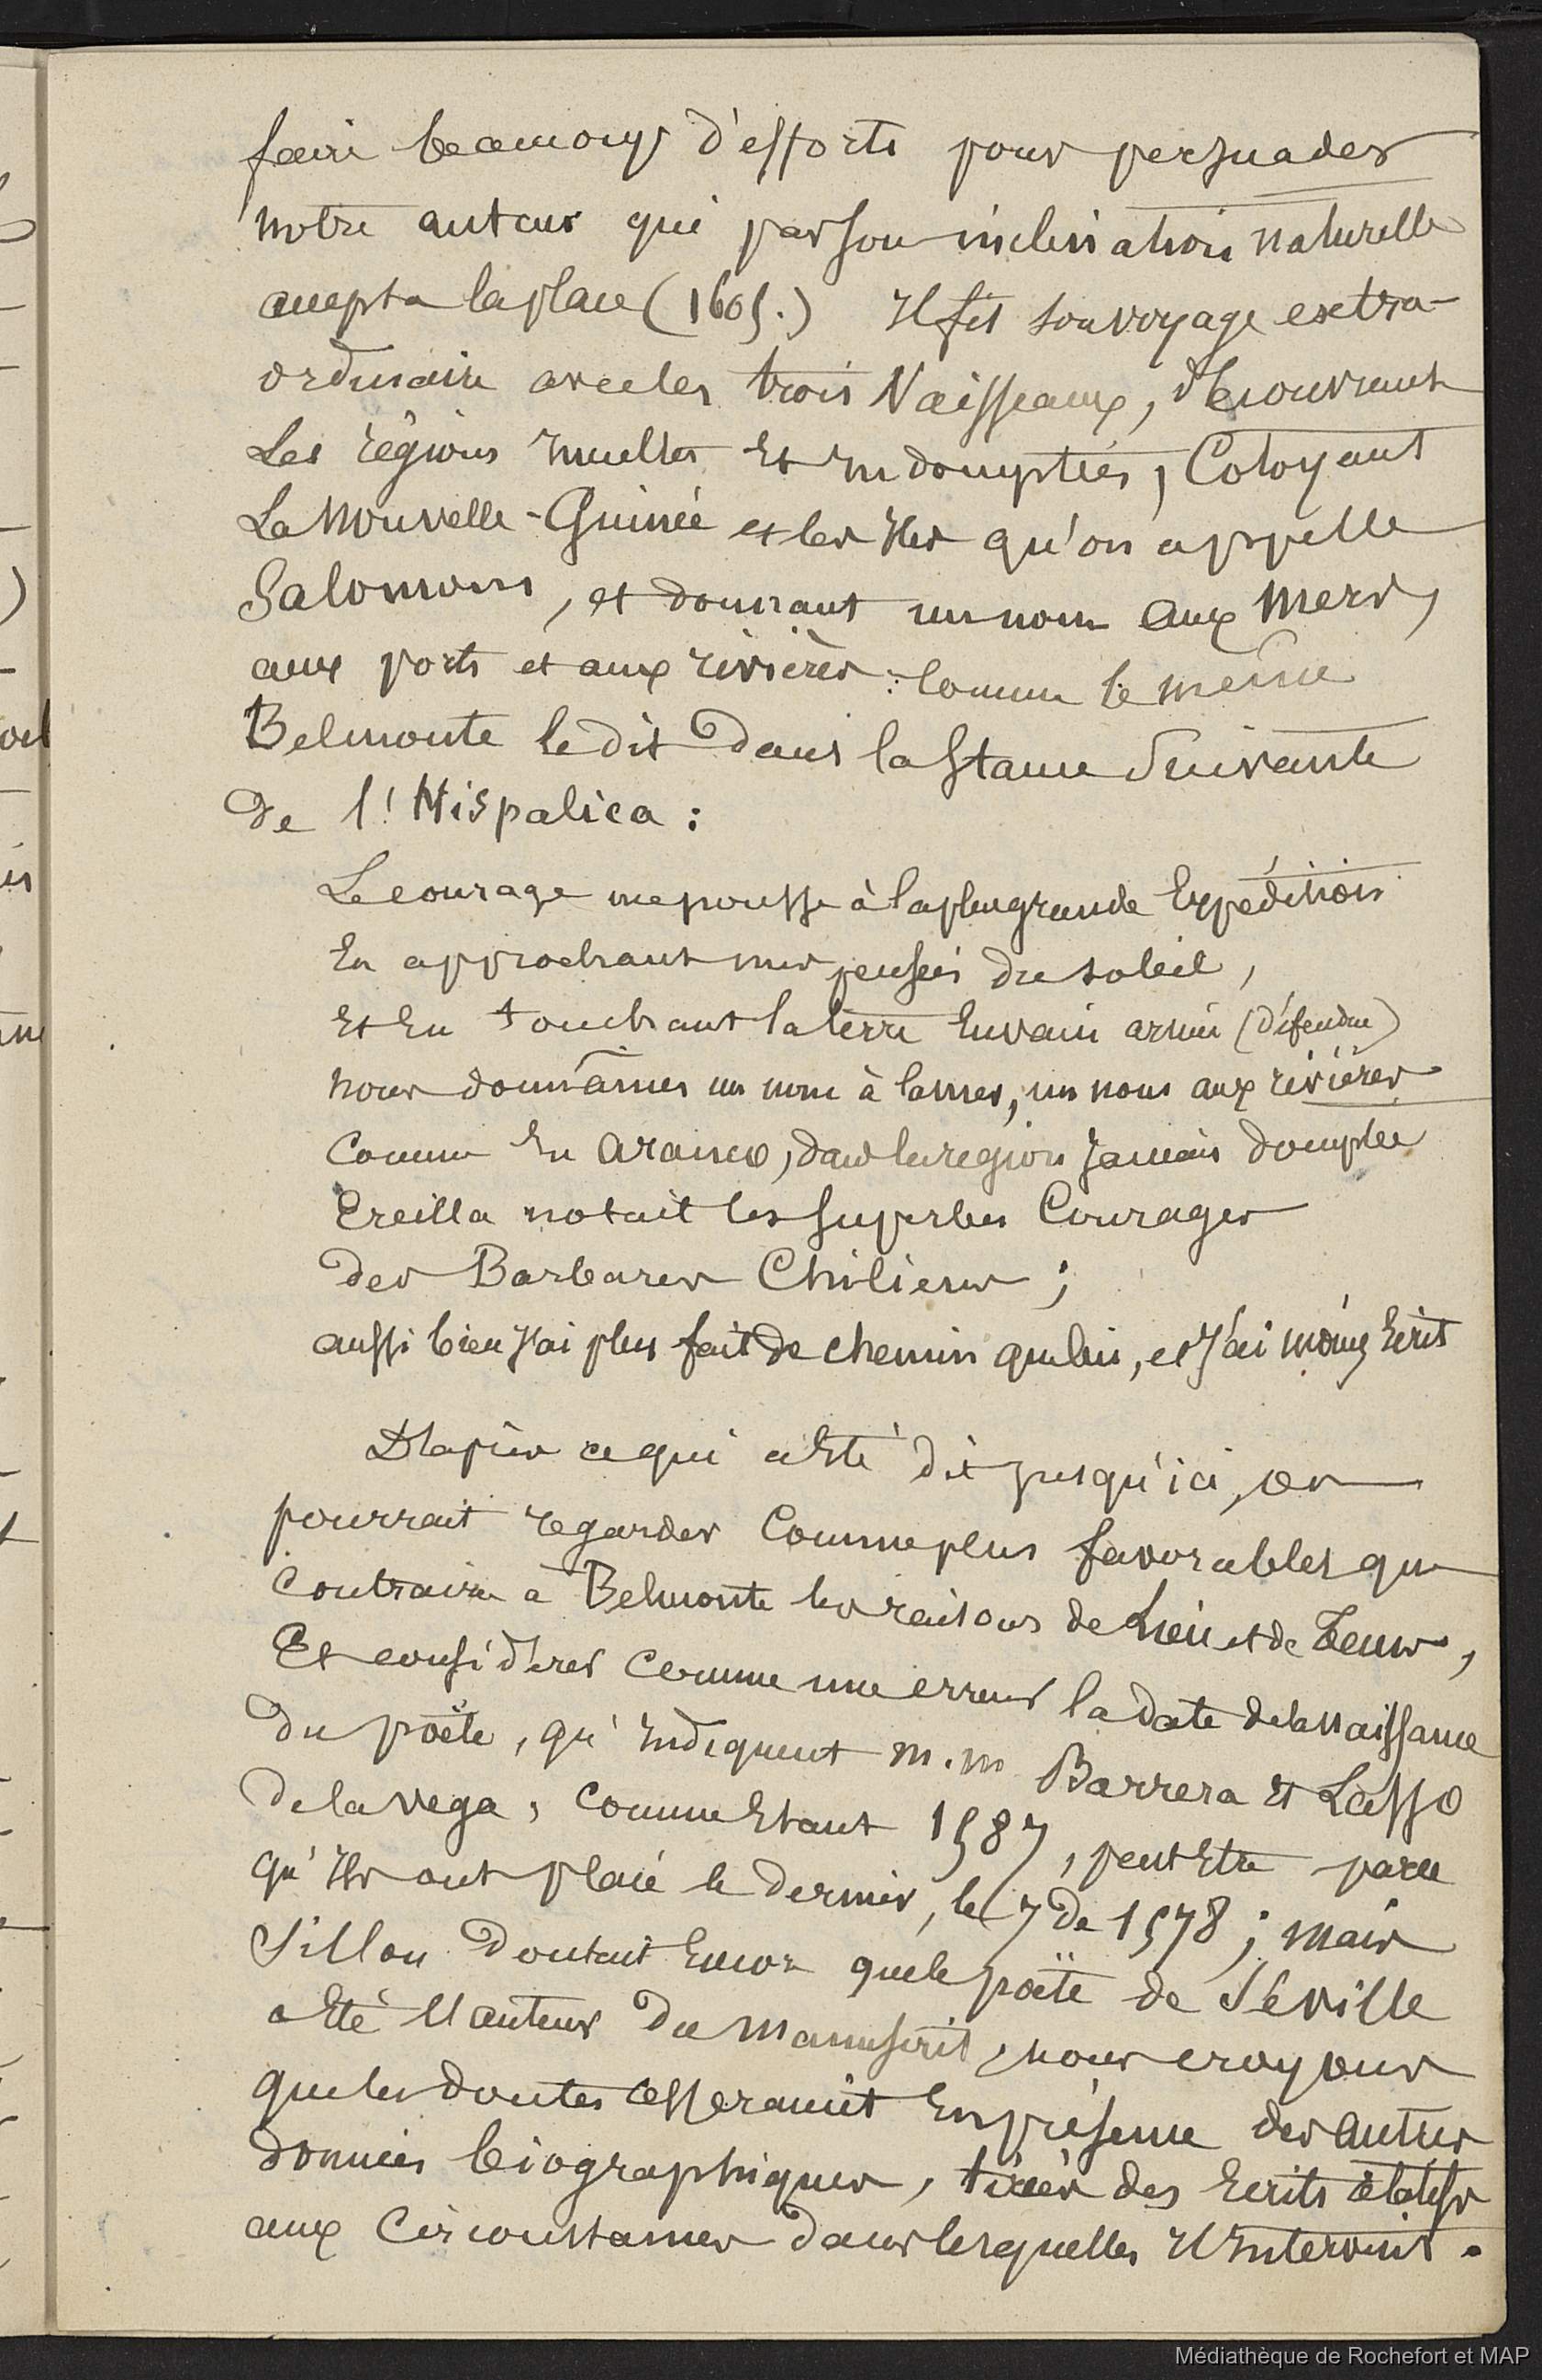 faire beaucoup d'efforts pour persuader
notre auteur qui par son inclination naturelle
accepta la place (1605.) Il fit son voyage extra-
ordinaire avec les trois Vaisseaux, découvrant
Les régions incultes Et Indomptées, Cotoyant
La Nouvelle-Guinée et les Iles qu'on appelle
Salomons, et donnant un nom aux Mers,
aux ports et aux rivières : Comme le même
Belmonte le dit Dans la Stance Suivante
De l'Hispalica :
Le courage me pousse à la plus grande Expédition
En approchant mes pensées du soleil,
Et En touchant la terre Envain armée (Défendue)
nous donnâmes un nom à la mer, un nom aux rivières
Comme En Arauco, dans la region Jamais domptée
Ercilla notait les Superbes Courages
Des Barbares Chiliens ;
aussi bien J'ai plus fait de chemin que lui, et J'ai moins Ecrit
D'après ce qui a Eté dit jusqu'ici, on
pourrait regarder Comme plus favorables que
Contraires à Belmonte les raisons de Lieu et de Tems,
Et considérer Comme une erreur la date de la naissance
Du poëte, qu'Indiquent m.m Barrera Et Lasso
De la Vega, Comme Etant 1587, peut Etre parce
qu'Ils ont placé le dernier, le 7 de 1578 ; mais
Si l'on Doutait Encore que le poëte de Séville
a Eté l'auteur Du Manuscrit, nous croyons
que les doutes cesseraient En présence des autres
données biographiques, tirées des Ecrits relatifs
aux Circonstances dans lesquelles Il Intervint.
Médiathèque de Rochefort et MAP